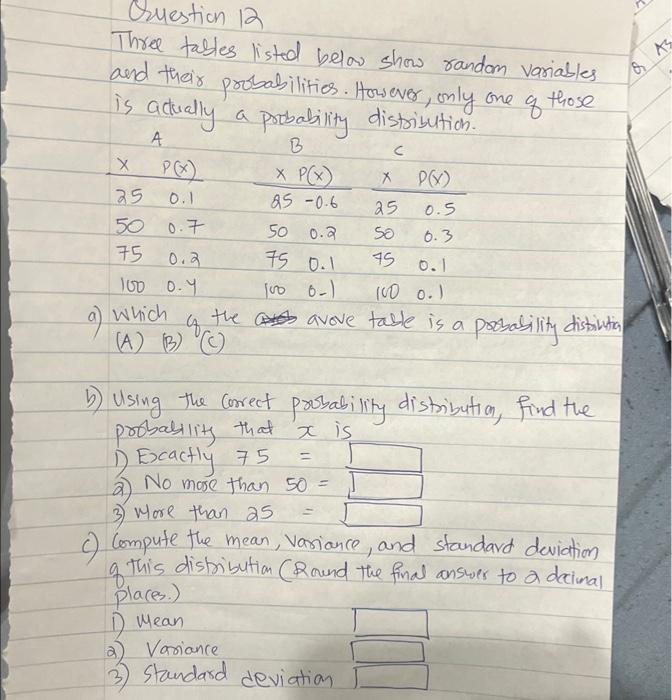 Question 12
Three tables listed below show random variables
and their probabilities. However, only one of those
is actually a probability distribution.
A B C
X P(X) X P(X) X P(X)
25 0.1 25 -0.6 25 0.5
50 0.7 50 0.2 50 0.3
75 0.2 75 0.1 75 0.1
100 0.4 100 0.1 100 0.1
a) Which of the avove table is a probability distribution
(A) (B) (C)
b) Using the correct probability distribution, find the
probability that x is
1) Excactly 75 =
2) No more than 50 =
3) More than 25 =
c) Compute the mean, variance, and standard deviation
of this distribution (Round the final answer to 2 decimal
places.)
1) Mean
2) Variance
3) Standard deviation